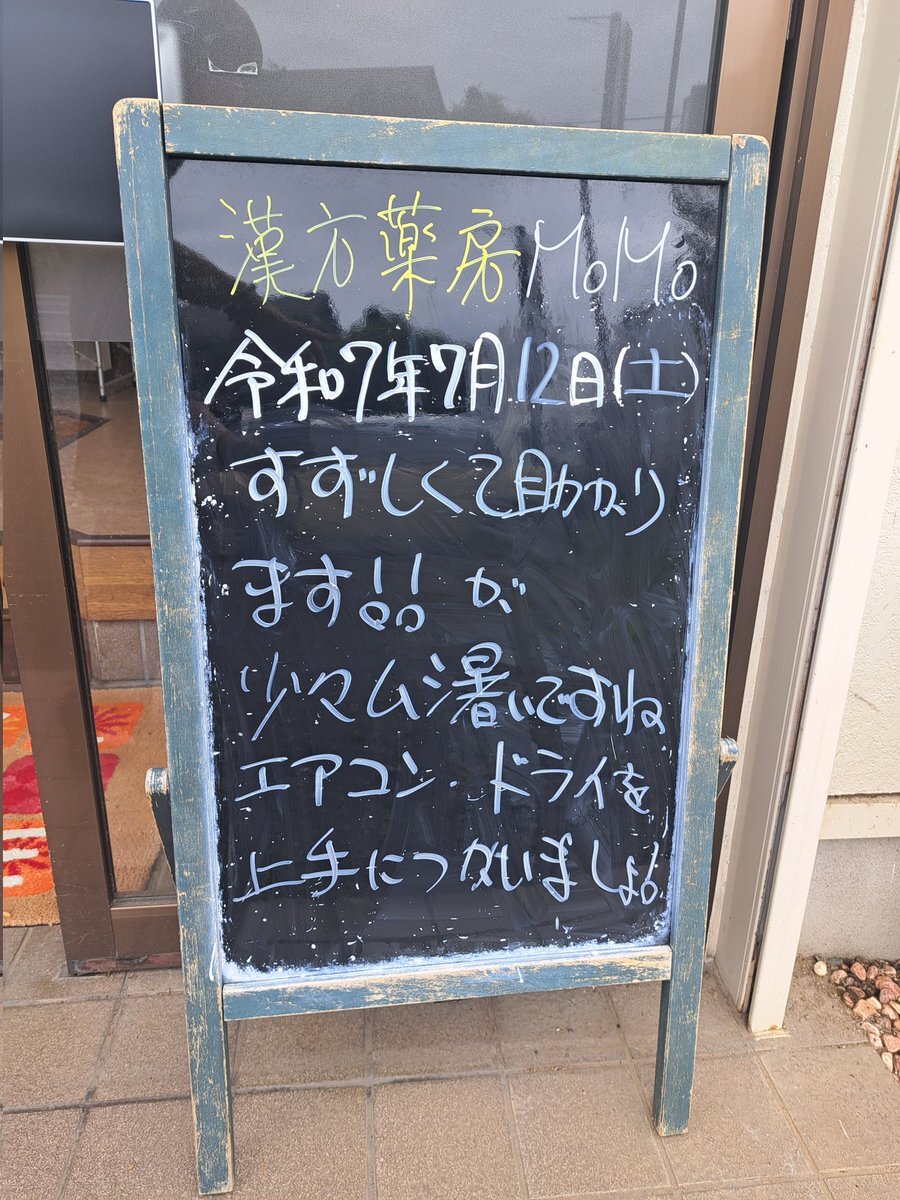 漢方薬房MOMO
令和7年7月12日(土)
すずしくて助かり
ます!! が
少々ムシ暑いですね
エアコン・ドライを
上手につかいましょ!